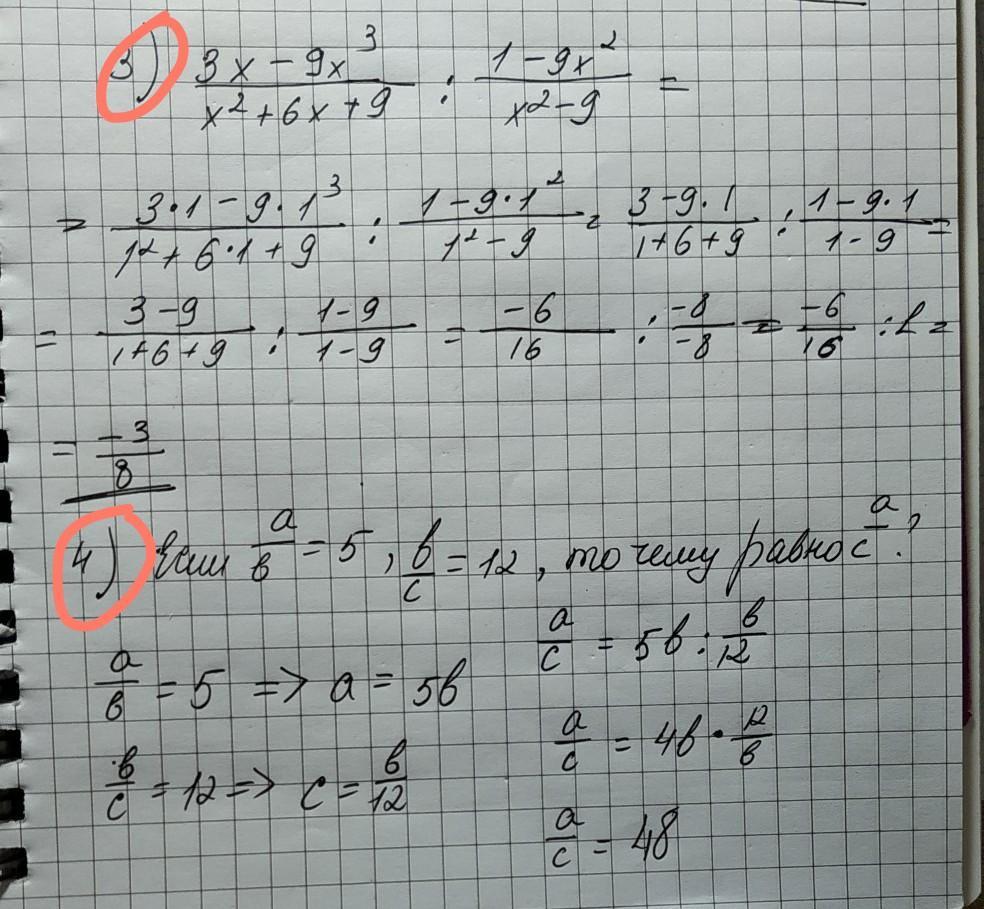 3) (3x - 9x³)/(x² + 6x + 9) : (1 - 9x²)/(x² - 9) =
= (3·1 - 9·1³)/(1² + 6·1 + 9) : (1 - 9·1²)/(1² - 9) = (3 - 9·1)/(1 + 6 + 9) : (1 - 9·1)/(1 - 9) =
= (3 - 9)/(1 + 6 + 9) : (1 - 9)/(1 - 9) = -6/16 : -8/-8 = -6/16 : 1 =
= -3/8
4) Если a/в = 5, в/c = 12, то чему равно a/c?
a/в = 5 => a = 5в
в/c = 12 => c = в/12
a/c = 5в : в/12
a/c = 4в · 12/в
a/c = 48